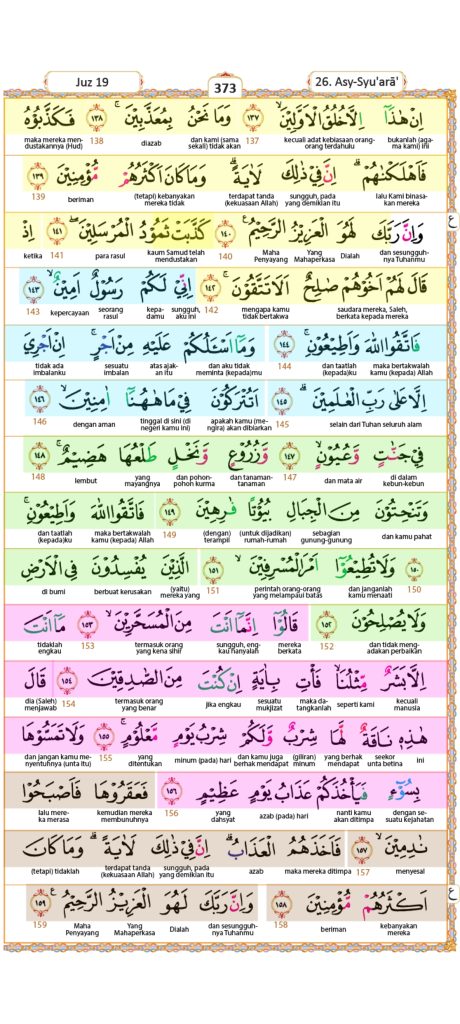 Juz 19
373
26. Asy-Syu'arā'
اِنْ هٰذَآ اِلَّا خُلُقُ الْاَوَّلِيْنَ ۙ ١٣٧ وَمَا نَحْنُ بِمُعَذَّبِيْنَ ۚ ١٣٨ فَكَذَّبُوْهُ
bukanlah (agama kami) ini kecuali adat kebiasaan orang-orang terdahulu 137 dan kami (sama sekali) tidak akan diazab 138 maka mereka mendustakannya (Hud)
فَاَهْلَكْنٰهُمْ ۗ اِنَّ فِيْ ذٰلِكَ لَاٰيَةً ۗ وَمَا كَانَ اَكْثَرُهُمْ مُّؤْمِنِيْنَ ١٣٩
lalu Kami binasakan mereka sungguh, pada yang demikian itu terdapat tanda (kekuasaan Allah) (tetapi) kebanyakan mereka tidak beriman 139
وَاِنَّ رَبَّكَ لَهُوَ الْعَزِيْزُ الرَّحِيْمُ ࣖ ١٤٠ كَذَّبَتْ ثَمُوْدُ الْمُرْسَلِيْنَ ۖ ١٤١ اِذْ
ع
dan sesungguhnya Tuhanmu Dialah Yang Mahaperkasa Maha Penyayang 140 kaum Samud telah mendustakan para rasul 141 ketika
قَالَ لَهُمْ اَخُوْهُمْ صٰلِحٌ اَلَا تَتَّقُوْنَ ۚ ١٤٢ اِنِّيْ لَكُمْ رَسُوْلٌ اَمِيْنٌ ۙ ١٤٣
saudara mereka, Saleh, berkata kepada mereka mengapa kamu tidak bertakwa 142 sungguh, aku ini kepadamu seorang rasul kepercayaan 143
فَاتَّقُوا اللّٰهَ وَاَطِيْعُوْنِ ۚ ١٤٤ وَمَآ اَسْـَٔلُكُمْ عَلَيْهِ مِنْ اَجْرٍۚ اِنْ اَجْرِيَ
maka bertakwalah kamu (kepada) Allah dan taatlah (kepada)ku 144 dan aku tidak meminta (kepada)mu atas ajakan itu sesuatu imbalan tidak ada imbalanku
اِلَّا عَلٰى رَبِّ الْعٰلَمِيْنَ ۗ ١٤٥ اَتُتْرَكُوْنَ فِيْ مَا هٰهُنَآ اٰمِنِيْنَ ۙ ١٤٦
selain dari Tuhan seluruh alam 145 apakah kamu (mengira) akan dibiarkan tinggal di sini (di negeri kamu ini) dengan aman 146
فِيْ جَنّٰتٍ وَّعُيُوْنٍ ۙ ١٤٧ وَّزُرُوْعٍ وَّنَخْلٍ طَلْعُهَا هَضِيْمٌ ۚ ١٤٨
di dalam kebun-kebun dan mata air 147 dan tanaman-tanaman dan pohon-pohon kurma yang mayangnya lembut 148
وَتَنْحِتُوْنَ مِنَ الْجِبَالِ بُيُوْتًا فٰرِهِيْنَ ١٤٩ فَاتَّقُوا اللّٰهَ وَاَطِيْعُوْنِ ۚ
dan kamu pahat sebagian gunung-gunung (untuk dijadikan) rumah-rumah (dengan) terampil 149 maka bertakwalah kamu (kepada) Allah dan taatlah (kepada)ku
١٥٠ وَلَا تُطِيْعُوْٓا اَمْرَ الْمُسْرِفِيْنَ ۙ ١٥١ الَّذِيْنَ يُفْسِدُوْنَ فِى الْاَرْضِ
150 dan janganlah kamu menaati perintah orang-orang yang melampaui batas 151 (yaitu) mereka yang berbuat kerusakan di bumi
وَلَا يُصْلِحُوْنَ ١٥٢ قَالُوْٓا اِنَّمَآ اَنْتَ مِنَ الْمُسَحَّرِيْنَ ۙ ١٥٣ مَآ اَنْتَ
dan tidak mengadakan perbaikan 152 mereka berkata sungguh, engkau hanyalah termasuk orang yang kena sihir 153 tidaklah engkau
اِلَّا بَشَرٌ مِّثْلُنَاۙ فَأْتِ بِاٰيَةٍ اِنْ كُنْتَ مِنَ الصّٰدِقِيْنَ ١٥٤ قَالَ
kecuali manusia seperti kami maka datangkanlah sesuatu mukjizat jika engkau termasuk orang yang benar 154 dia (Saleh) menjawab
هٰذِهٖ نَاقَةٌ لَّهَا شِرْبٌ وَّلَكُمْ شِرْبُ يَوْمٍ مَّعْلُوْمٍ ۚ ١٥٥ وَلَا تَمَسُّوْهَا
ini seekor unta betina yang berhak mendapat (giliran) minum dan kamu juga berhak mendapat minum (pada) hari yang ditentukan 155 dan jangan kamu menyentuhnya (unta itu)
بِسُوْۤءٍ فَيَأْخُذَكُمْ عَذَابُ يَوْمٍ عَظِيْمٍ ١٥٦ فَعَقَرُوْهَا فَاَصْبَحُوْا
dengan sesuatu kejahatan nanti kamu akan ditimpa azab (pada) hari yang dahsyat 156 kemudian mereka membunuhnya lalu mereka merasa
نٰدِمِيْنَ ۙ ١٥٧ فَاَخَذَهُمُ الْعَذَابُۗ اِنَّ فِيْ ذٰلِكَ لَاٰيَةً ۗ وَمَا كَانَ
menyesal 157 maka mereka ditimpa azab sungguh, pada yang demikian itu terdapat tanda (kekuasaan Allah) (tetapi) tidaklah
اَكْثَرُهُمْ مُّؤْمِنِيْنَ ١٥٨ وَاِنَّ رَبَّكَ لَهُوَ الْعَزِيْزُ الرَّحِيْمُ ࣖ ١٥٩
ع
kebanyakan mereka beriman 158 dan sesungguhnya Tuhanmu Dialah Yang Mahaperkasa Maha Penyayang 159